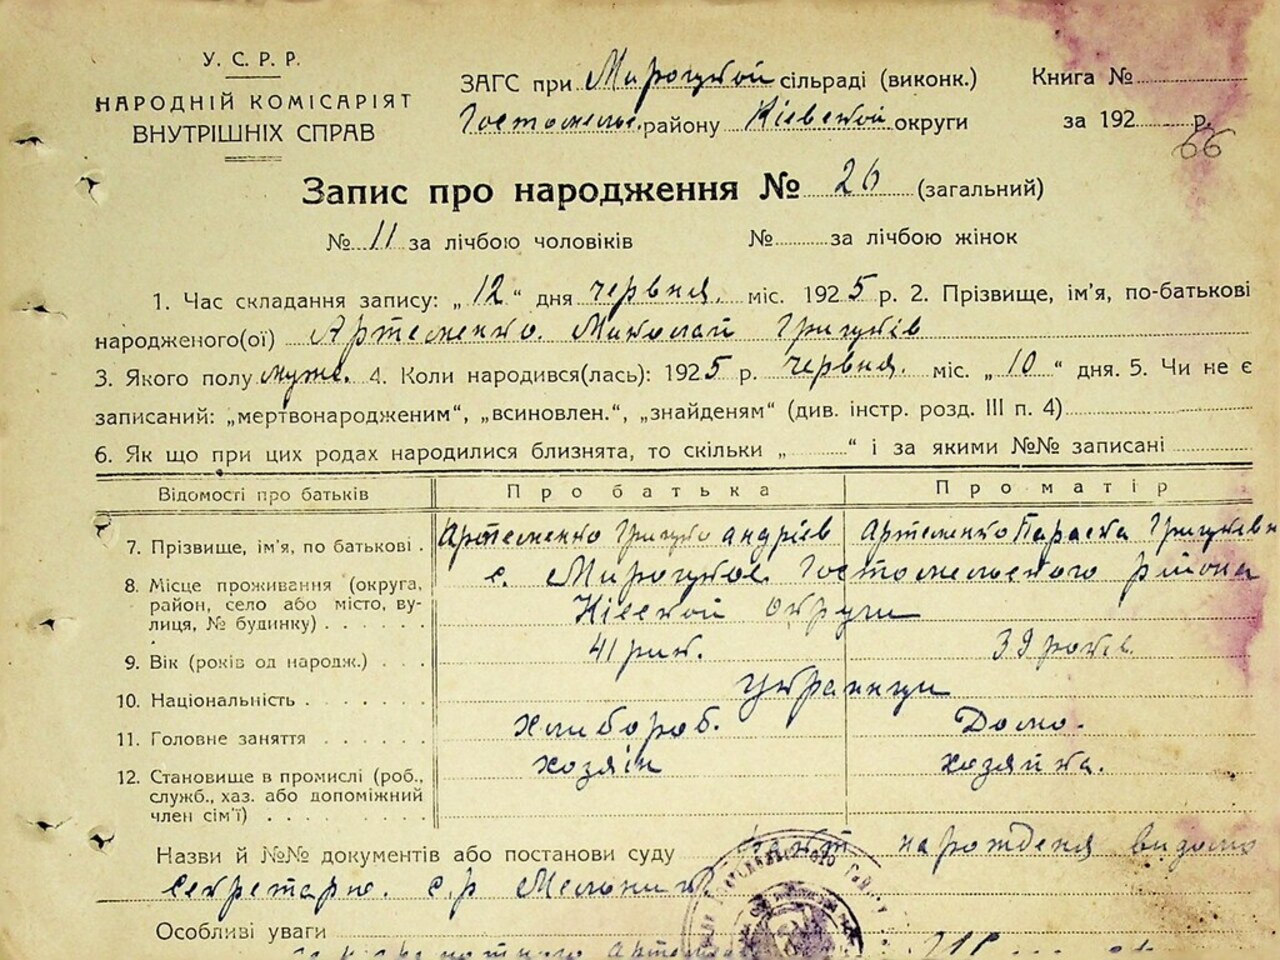 У. С. Р. Р.
НАРОДНІЙ КОМІСАРІЯТ
ВНУТРІШНІХ СПРАВ
ЗАГС при Мироцкой сільраді (виконк.)
Гостомельс. району Кіевской округи
Книга №
за 192 р.
66
Запис про народження № 26 (загальний)
№ 11 за лічбою чоловіків № за лічбою жінок
1. Час складання запису: „12“ дня червня. міс. 1925 р. 2. Прізвище, ім’я, по-батькові
народженого(ої) Артеменко. Миколай Грицків
3. Якого полу муже. 4. Коли народився(лась): 1925 р. червня. міс. „10“ дня. 5. Чи не є
записаний: „мертвонародженим“, „всиновлен.“, „знайденям“ (див. інстр. розд. III п. 4)
6. Як що при цих родах народилися близнята, то скільки „ “ і за якими №№ записані
Відомості про батьків Про батька Про матір
7. Прізвище, ім’я, по батькові . Артеменко Грицко андріев Артеменко Параска Грицковн
8. Місце проживання (округа, с. Мироцкое. Гостомельского района
район, село або місто, ву-
лиця, № будинку) . . . . . . Кіевской округи
9. Вік (років од народж.) . . . 41 рик. 39 років.
10. Національність . . . . . . . украинци
11. Головне заняття . . . . . . хлибороб. Домо.
12. Становище в промислі (роб., хозяін хозяйка.
служб., хаз. або допоміжний
член сім’ї) . . . . . . . . .
Назви й №№ документів або постанови суду факт нарождения видомо
секретарю. с.р
Особливі уваги